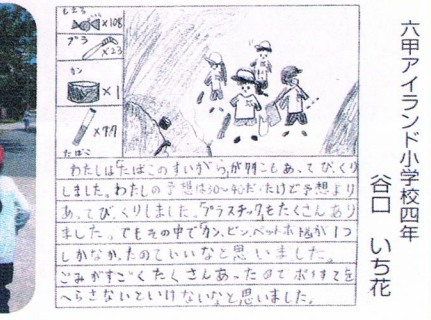 六甲アイランド小学校四年
谷口 いち花
もえる
×108
プラ
×23
カン
×1
×97
たばこ
わたしは「たばこのすいがら」が97こもあってびっくり
しました。わたしの予想は30〜40だったけど予想より
あってびっくりしました。「プラスチック」もたくさんあり
ました。でもその中で「カン、ビン、ペットボトル」が1つ
しかなかったのでいいなと思いました。
ごみがすごくたくさんあったのでポイすてを
へらさないといけないなと思いました。